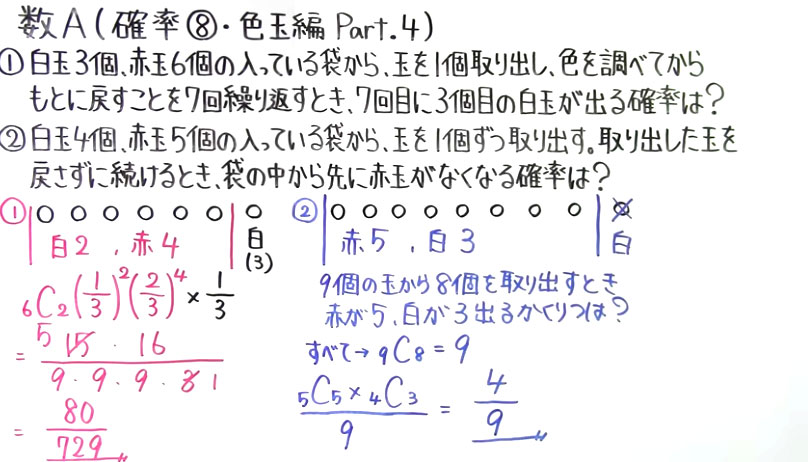 数A(確率⑧・色玉編 Part.4)
①白玉3個、赤玉6個の入っている袋から、玉を1個取り出し、色を調べてから
もとに戻すことを7回繰り返すとき、7回目に3個目の白玉が出る確率は?
②白玉4個、赤玉5個の入っている袋から、玉を1個ずつ取り出す。取り出した玉を
戻さずに続けるとき、袋の中から先に赤玉がなくなる確率は?
① | ○ ○ ○ ○ ○ ○ | ○
白2 , 赤4 | 白
(3)
₆C₂(1/3)²(2/3)⁴ × 1/3
= 5 15 · 16 / 9 · 9 · 9 · 3 1
= 80/729
② | ○ ○ ○ ○ ○ ○ ○ ○ | ○
赤5 , 白3 | 白
9個の玉から8個を取り出すとき
赤が5、白が3出るかくりつは?
すべて→ ₉C₈ = 9
₅C₅ × ₄C₃ / 9 = 4/9